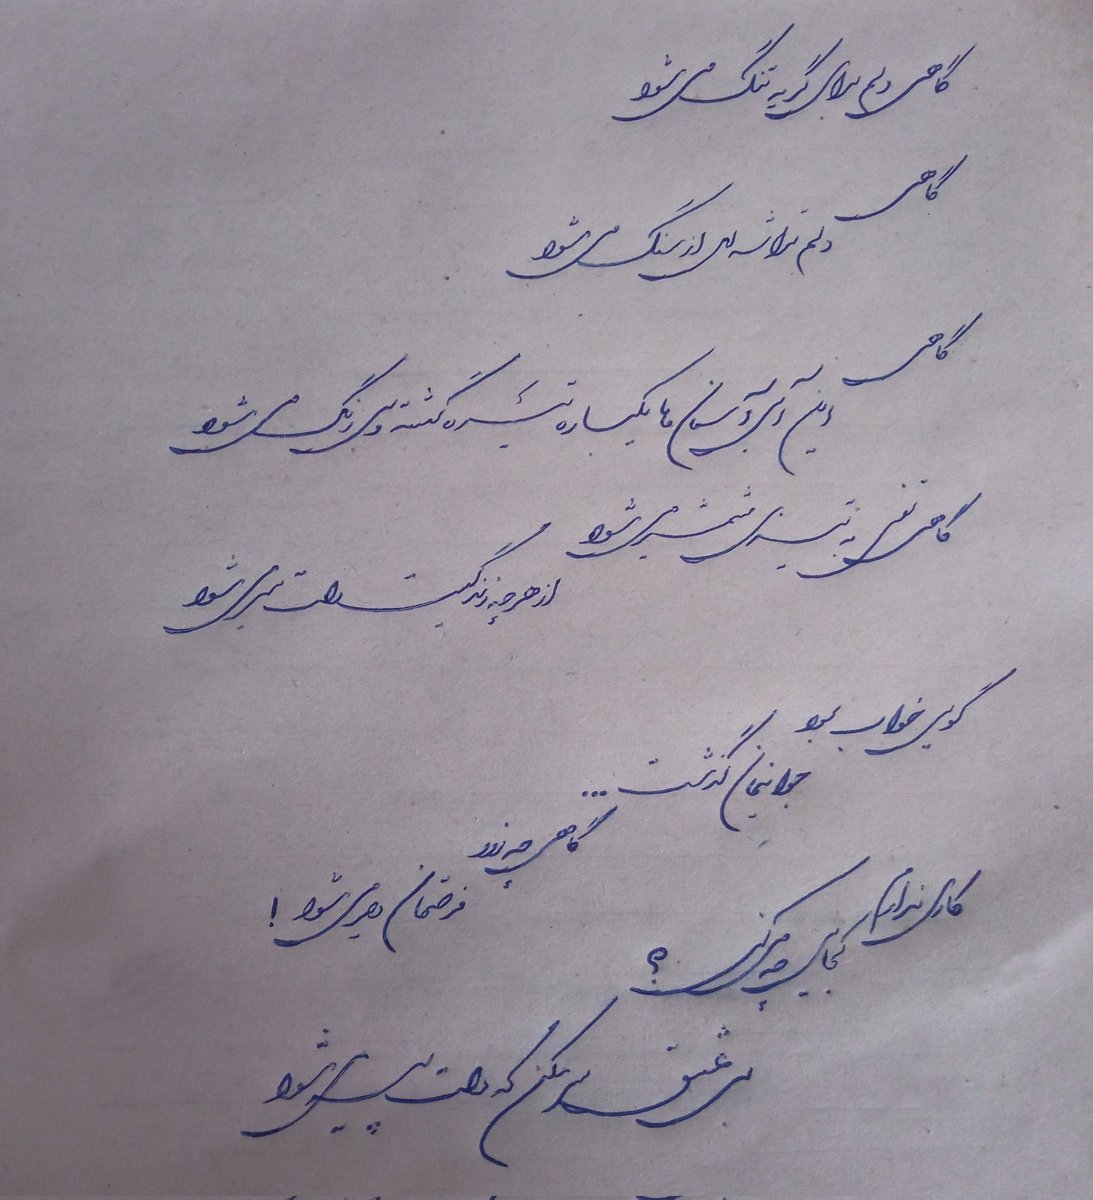 گاهی دلم برای گریه تنگ می شود
گاهی
دلم تراشه ای از سنگ می شود
گاهی
این آبی آسمان ما یکباره تیره گشته و بی رنگ می شود
گاهی نفس به تیزی شمشیر می شود
از هر چه زندگیست دلت سیر می شود
گویی خواب بود
جوانیمان گذشت ...
گاهی چه زود
فرصتمان دیر می شود !
کاری ندارم
کجایی چه می کنی ؟
بی عشق سر مکن که دلت پیر می شود